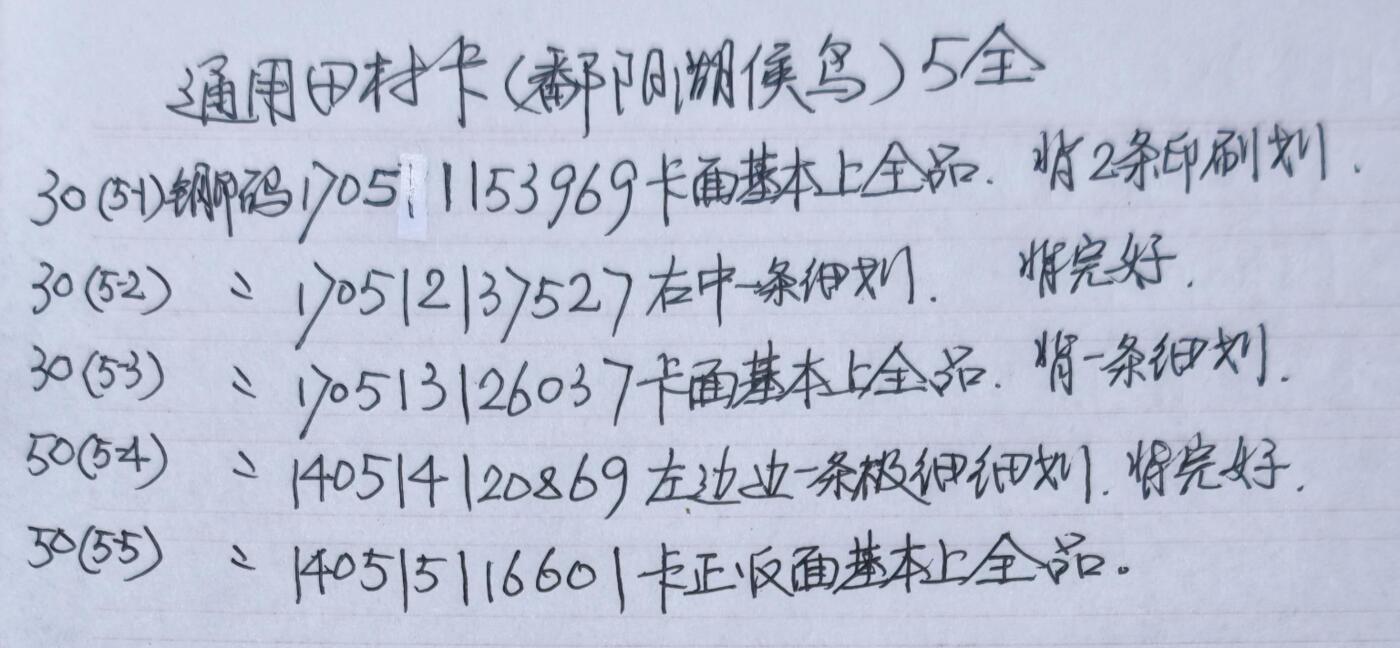 通用田村卡(鄱阳湖侯鸟)5全
30(5-1)钢印码170511153969卡面基本上全品. 背2条印刷划.
30(5-2) 〃 170512137527右中一条细划. 背完好.
30(5-3) 〃 170513126037卡面基本上全品. 背一条细划.
50(5-4) 〃 140514120869左边边一条极细细划. 背完好.
50(5-5) 〃 140515116601卡正.反面基本上全品。